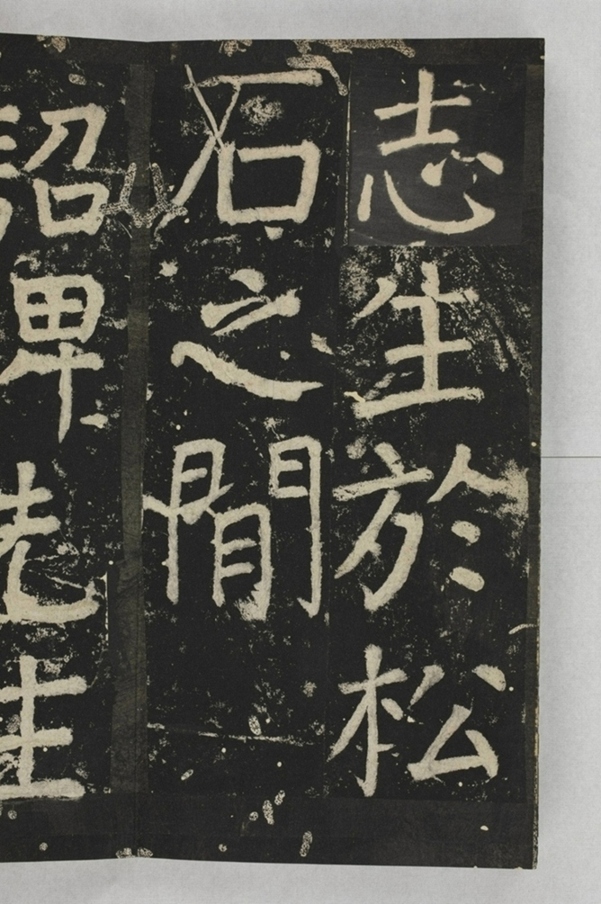 志生於松
石之間
詔碑先生